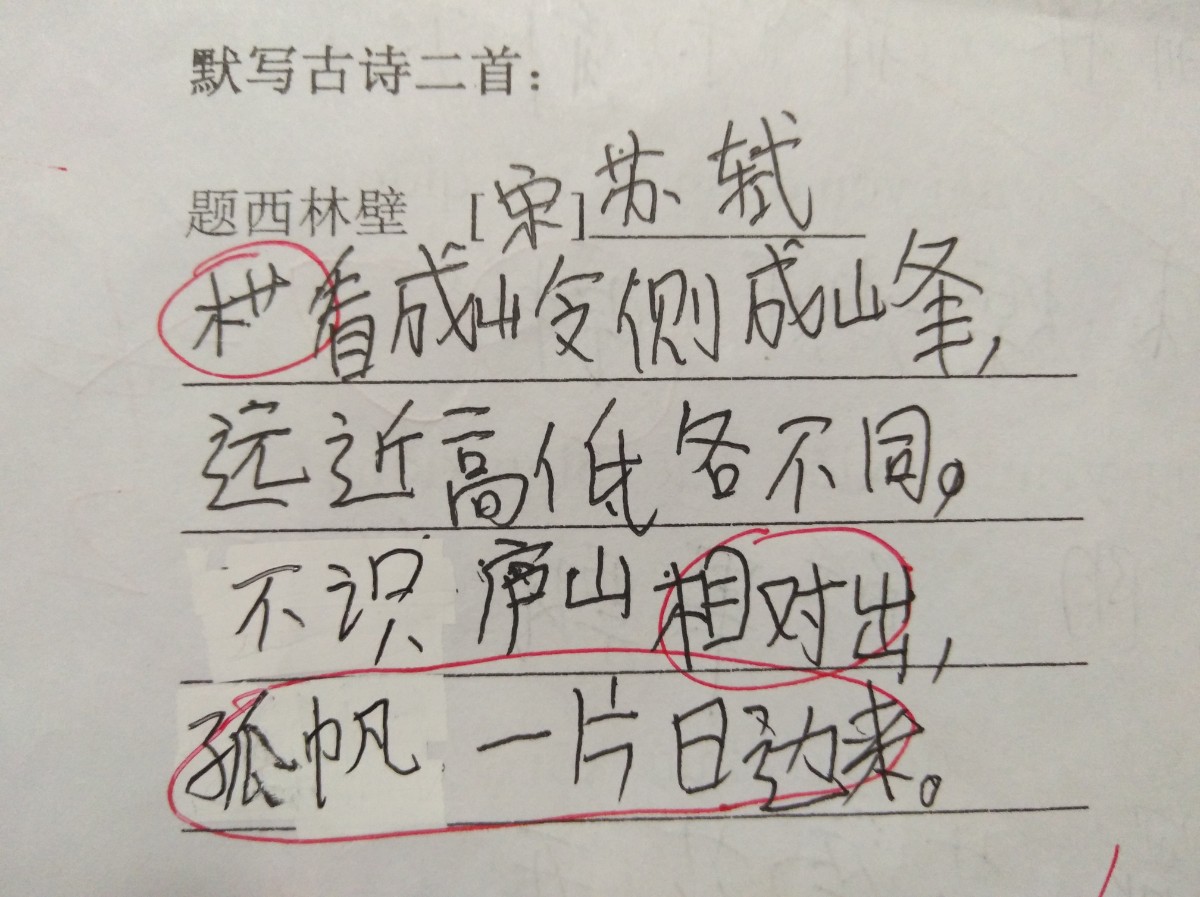 默写古诗二首：
题西林壁 [宋]苏轼
看成岭侧成山峰，
远近高低各不同。
不识庐山相对出，
孤帆一片日边来。